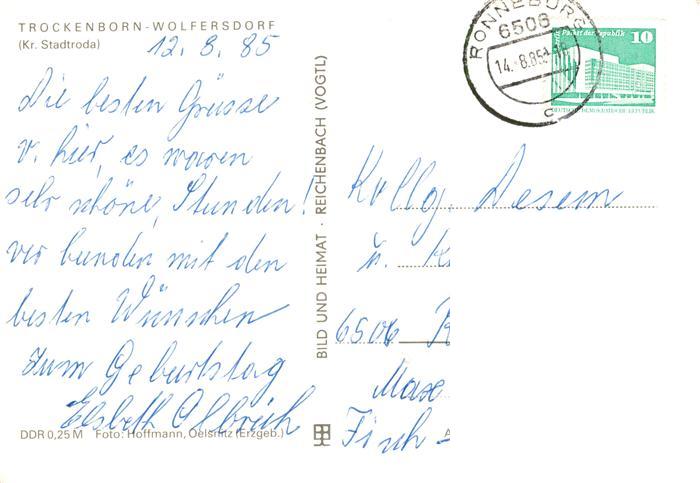 TROCKENBORN-WOLFERSDORF
(Kr. Stadtroda)
12. 8. 85
Die besten Grüsse
v. hier, es waren
sehr schöne, Stunden!
ver bunden mit den
besten Wünschen
zum Geburtstag
Elsbeth Albrech
DDR 0,25 M Foto: Hoffmann, Oelsnitz (Erzgeb.)
BILD UND HEIMAT · REICHENBACH (VOGTL)
RONNEBURG
6506
14.-8.85
c
Palast der Republik 10
DEUTSCHE DEMOKRATISCHE REPUBLIK
Kollg. Desem
u. K
6506 R
Max
Fisch-